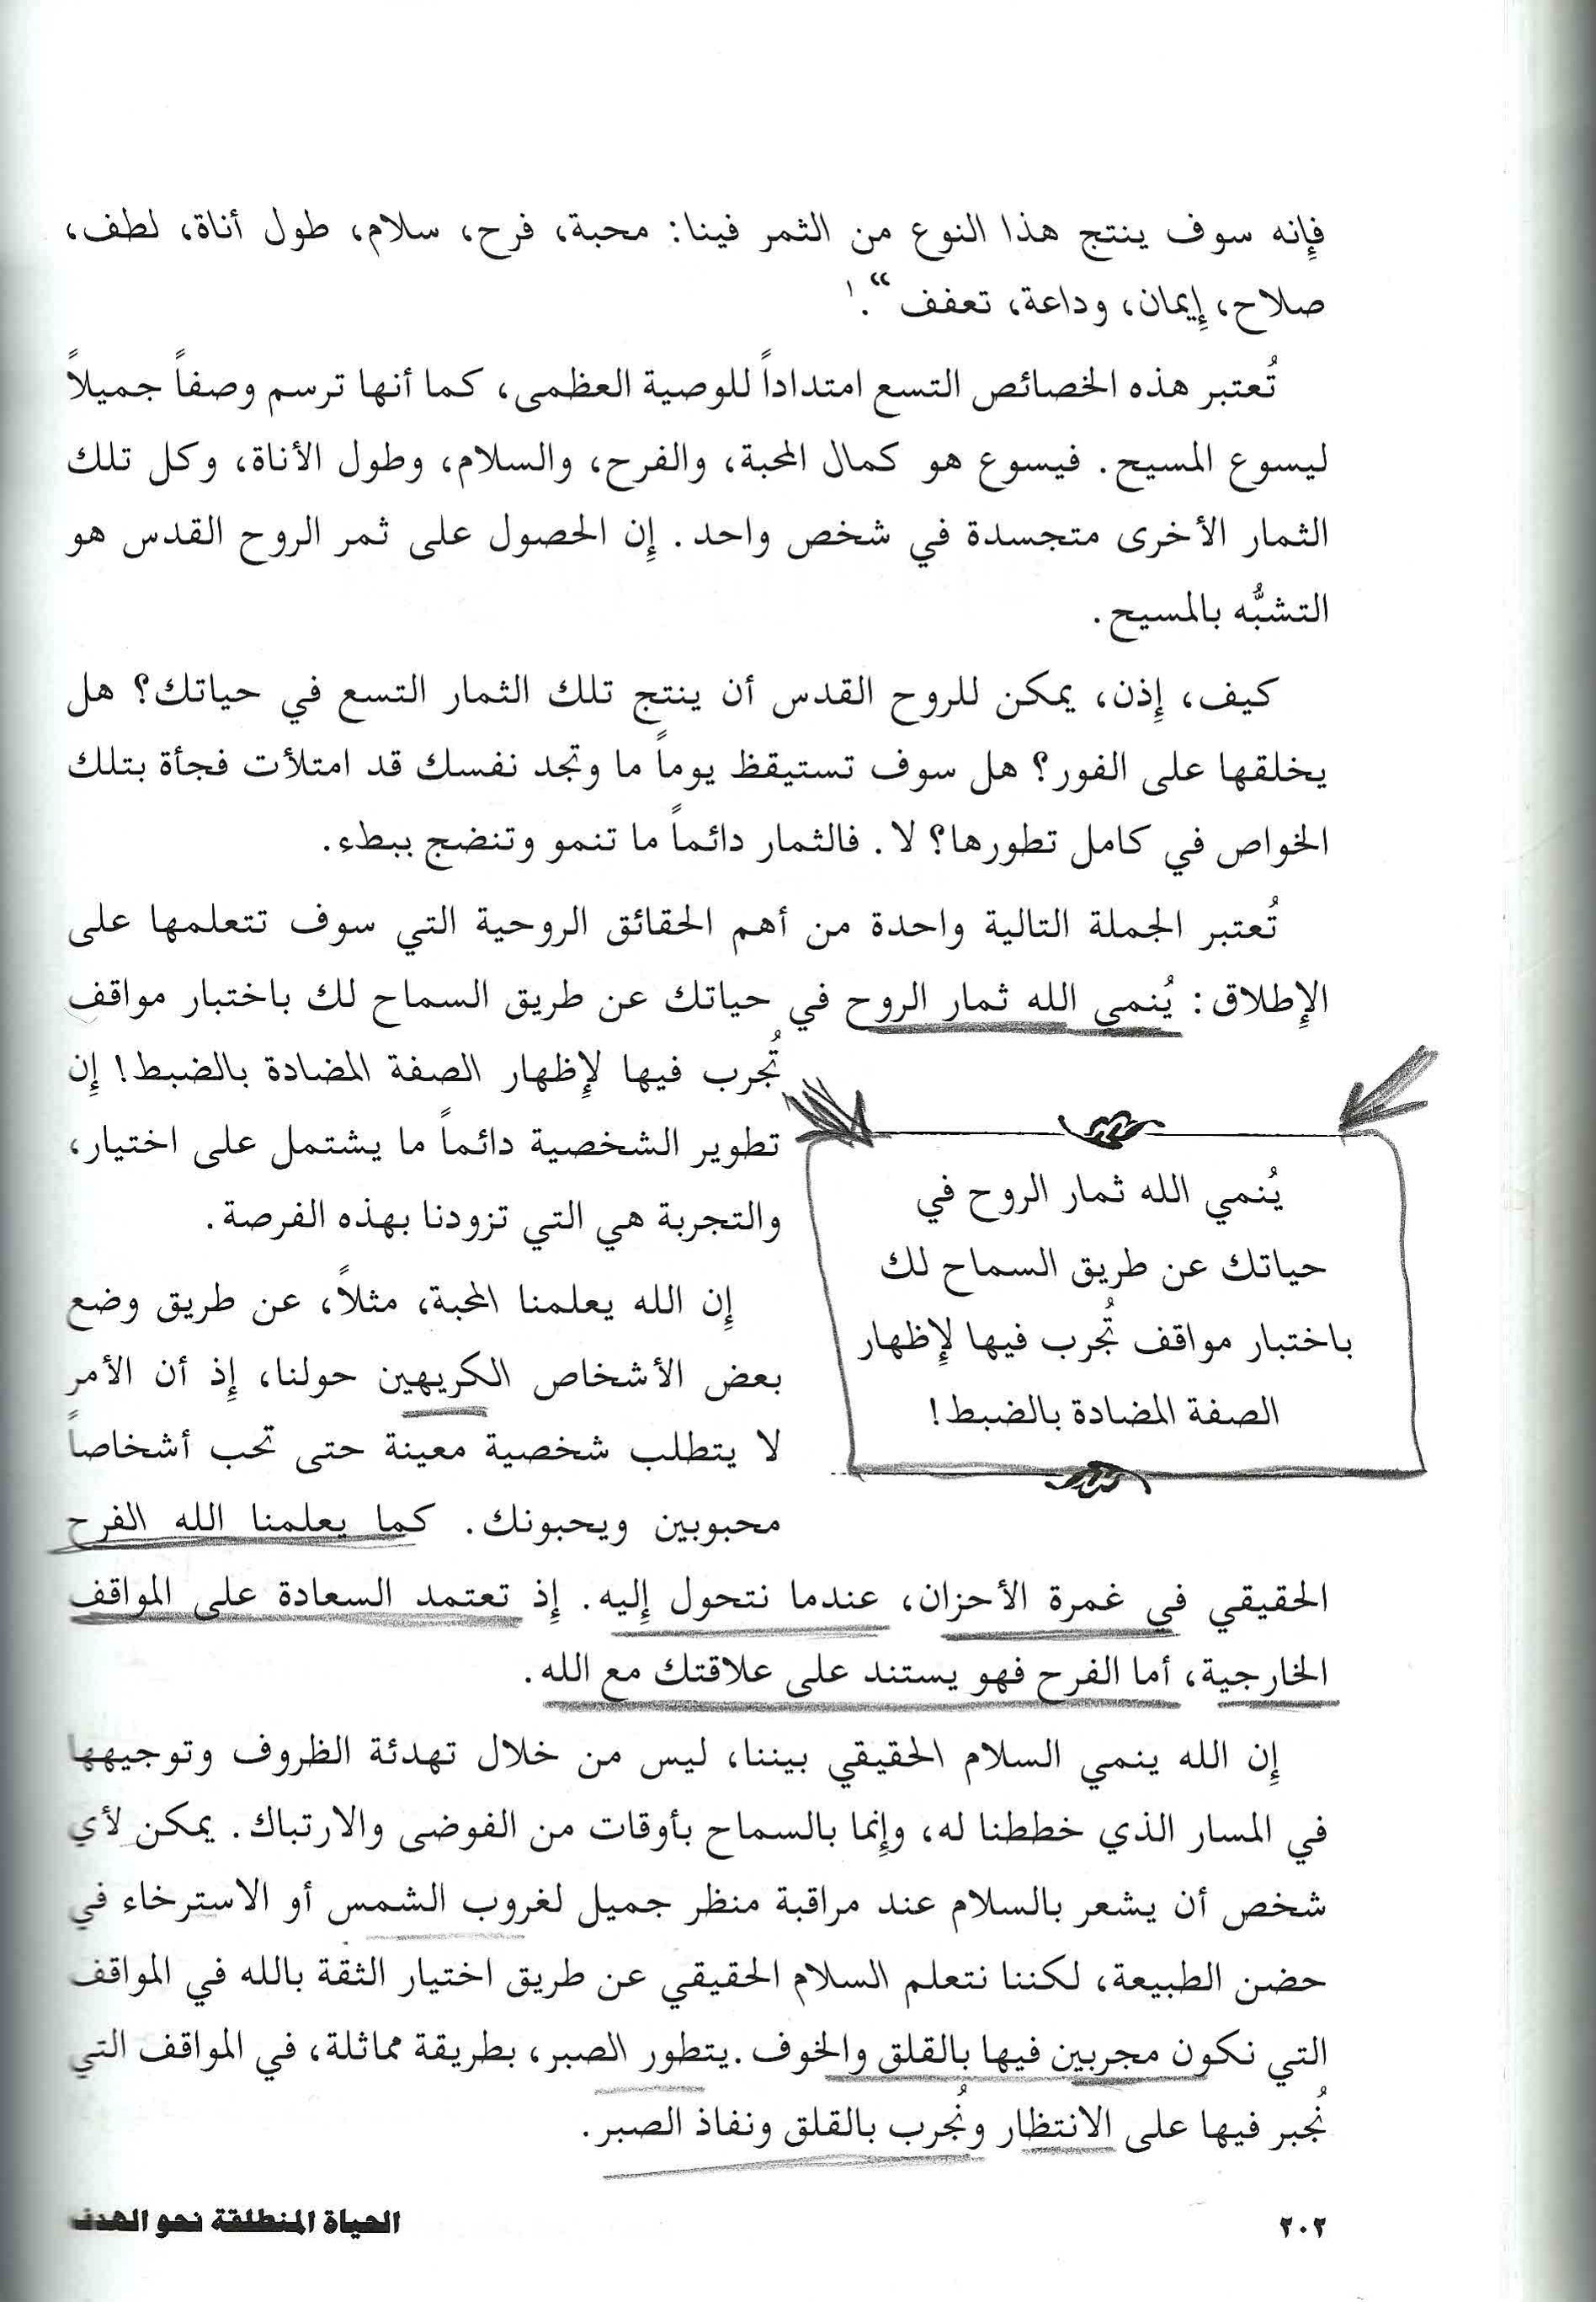 فإنه سوف ينتج هذا النوع من الثمر فينا: محبة، فرح، سلام، طول أناة، لطف،
صلاح، إيمان، وداعة، تعفف“.١
تُعتبر هذه الخصائص التسع امتداداً للوصية العظمى، كما أنها ترسم وصفاً جميلاً
ليسوع المسيح. فيسوع هو كمال المحبة، والفرح، والسلام، وطول الأناة، وكل تلك
الثمار الأخرى متجسدة في شخص واحد. إن الحصول على ثمر الروح القدس هو
التشبُّه بالمسيح.
كيف، إذن، يمكن للروح القدس أن ينتج تلك الثمار التسع في حياتك؟ هل
يخلقها على الفور؟ هل سوف تستيقظ يوماً ما وتجد نفسك قد امتلأت فجأة بتلك
الخواص في كامل تطورها؟ لا. فالثمار دائماً ما تنمو وتنضج ببطء.
تُعتبر الجملة التالية واحدة من أهم الحقائق الروحية التي سوف تتعلمها على
الإطلاق: يُنمي الله ثمار الروح في حياتك عن طريق السماح لك باختبار مواقف
تُجرب فيها لإظهار الصفة المضادة بالضبط! إن
تطوير الشخصية دائماً ما يشتمل على اختيار،
والتجربة هي التي تزودنا بهذه الفرصة.
يُنمي الله ثمار الروح في
حياتك عن طريق السماح لك
باختبار مواقف تُجرب فيها لإظهار
الصفة المضادة بالضبط!
إن الله يعلمنا المحبة، مثلاً، عن طريق وضع
بعض الأشخاص الكريهين حولنا، إذ أن الأمر
لا يتطلب شخصية معينة حتى تحب أشخاصاً
محبوبين ويحبونك. كما يعلمنا الله الفرح
الحقيقي في غمرة الأحزان، عندما نتحول إليه. إذ تعتمد السعادة على المواقف
الخارجية، أما الفرح فهو يستند على علاقتك مع الله.
إن الله ينمي السلام الحقيقي بيننا، ليس من خلال تهدئة الظروف وتوجيهها
في المسار الذي خططنا له، وإنما بالسماح بأوقات من الفوضى والارتباك. يمكن لأي
شخص أن يشعر بالسلام عند مراقبة منظر جميل لغروب الشمس أو الاسترخاء في
حضن الطبيعة، لكننا نتعلم السلام الحقيقي عن طريق اختيار الثقة بالله في المواقف
التي نكون مجربين فيها بالقلق والخوف. يتطور الصبر، بطريقة مماثلة، في المواقف التي
نُجبر فيها على الانتظار ونُجرب بالقلق ونفاذ الصبر.
٢٠٢
الحياة المنطلقة نحو الهدف